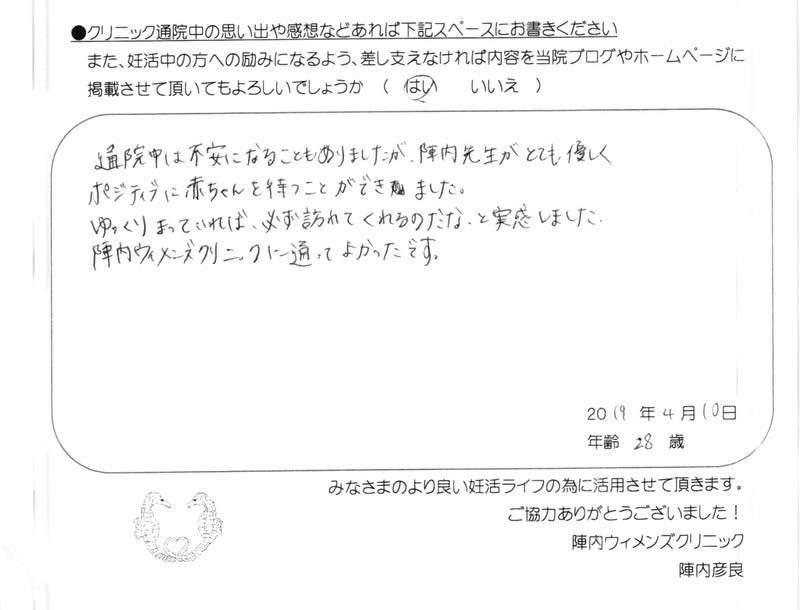 ●クリニック通院中の思い出や感想などあれば下記スペースにお書きください
また、妊活中の方への励みになるよう、差し支えなければ内容を当院ブログやホームページに
掲載させて頂いてもよろしいでしょうか （ はい　いいえ ）
通院中は不安になることもありましたが、陣内先生がとても優しく
ポジティブに赤ちゃんを待つことができました。
ゆっくりまっていれば、必ず訪れてくれるのだな、と実感しました。
陣内ウィメンズクリニックに通ってよかったです。
2019 年 4 月 10日
年齢 28 歳
みなさまのより良い妊活ライフの為に活用させて頂きます。
ご協力ありがとうございました！
陣内ウィメンズクリニック
陣内彦良